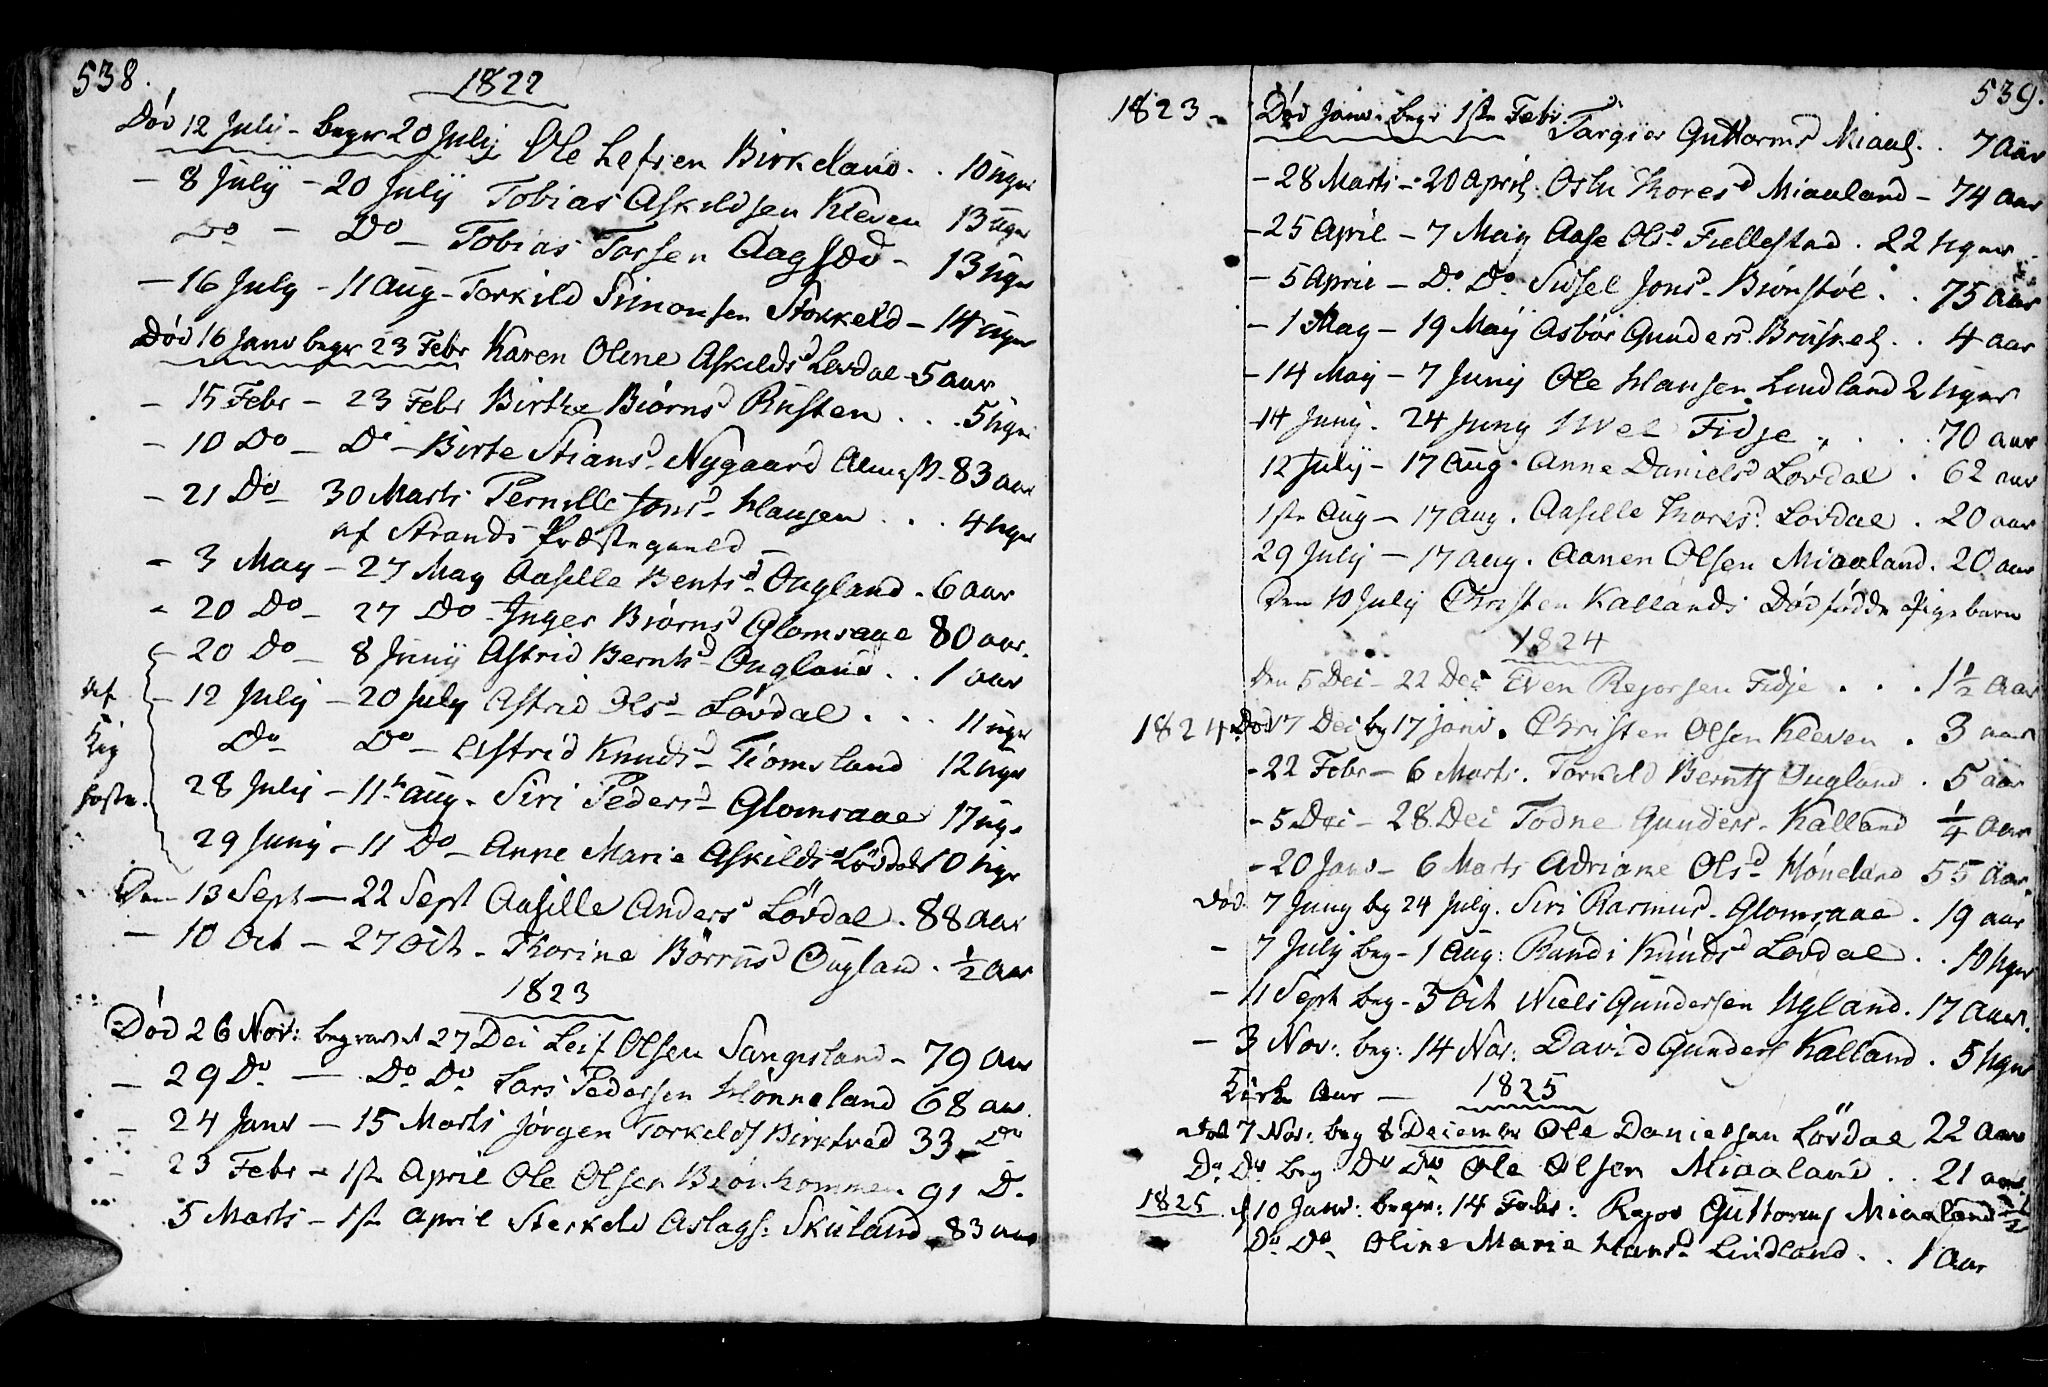 538.
1822
Død 12 Julij - begr 20 Julij Ole Lefsen Birkeland . . 10 uger
- 8 Julij - 20 Julij Tobias Askildsen Kleven 13 uger
Do - Do - Tobias Torsen Aagsæd - 13 uger
- 16 July - 11 Aug - Torkild Simonsen Stokkeld - 14 uger
Død 16 Janv begr 23 Febr Karen Oline Askildsd Løvdal - 5 aar
- 15 Febr - 23 Febr Birthe Biørnsd Rusten . . . 5 uger
- 10 Do - Do - Birte Stiansd Nygaard Almisl. 83 aar
- 21 Do 30 Marts Pernille Jonsd Hausen . . . 4 uger
af Strands Præstegield -
- 3 May - 27 May Aasille Bentsd Ougland . 6 aar
- 20 Do - 27 Do Inger Biørnsd Glomsaae 80 aar.
- 20 Do - 8 Junij Astrid Berntsd Ougland . . 1 aar
af - 12 Julij - 20 July Astrid Olsd - Løvdal . . . 11 uger
Kig Do Do - Astrid Knudsd - Tiomsland 12 uger
hoste. 28 Julij - 11te Aug. Siri Pedersd Glomsaae 17 uger
29 Junij - 11 Do - Anne Marie Askildsd Løvdal 10 uger
Den 13 Sept - 22 Sept Aasille Andersd Løvdal . 88 aar
- 10 Oct - 27 Oct - Thorine Børrusd Ougland . 1/2 aar
1823
Død 26 Nov: begravet 27 Dec Leif Olsen Sangesland - 79 aar
- 29 Do - Do Do Lars Pedersen Hønneland 68 aar.
- 24 Janv - 15 Marts Jørgen Torkilds Birketved 33 Do
- 23 Febr - 1ste April Ole Olsen Biønkommen 91 D.
5 Marts - 1ste April Sterkeld Aslags: Skuland 83 aar
539.
1823 - Død Janv. begr 1ste Febr. Targier Guttormsd Miaal. . 7 aar
- 28 Marts - 20 April. Oslu Thoresd Miaaland - 74 aar
- 25 April - 7 May Aase Olsd Fiellestad . 22 uger
- 5 April - Do Do Sidsel Jonsd - Biønstøl . . 75 aar
- 1 May - 19 Maij Asbør Gunders. Brusnes . . 4 aar
- 14 Maij - 7 Junij Ole Hansen Lindland 2 uger
14 Junij . 24 Junij Fidje . . . 70 aar
12 Julij - 17 Aug. Anne Danielsd Løvdal . 62 aar
1ste Aug - 17 Aug. Aasille Thoresd. Løvdal . 20 aar
29 Julij - 17 Aug. Aanen Olsen Miaaland. 20 aar
Den 10 Julij Christen Kallands Dødfødde Pigebarn
1824
Den 5 Dec - 22 Dec Even Rejersen Fidje . . . 1 1/2 aar
1824 Død 17 Dec bg 17 janv. Christen Olsen Kleven . 3 aar
- 22 Febr - 6 Marts. Torkild Bernts Ougland . 5 aar
- 5 Dec - 28 Dec Todne Gunders - Kalland 1/4 aar
- 20 Janv - 6 Marts Adriane Olsd Høneland 55 aar.
Død 7 Juny bg 24 July. Siri Rasmusd. Glomsaae . 19 aar
- 7 Julij beg - 1 Aug: Randi Knudsd Løvdal . . 10 uger
- 11 Sept beg - 3 Oct Niels Gundersen Ugland. 17 aar.
- 3 Nov: beg: 14 Nov: David Gunders Kalland . 5 uger
Kirke Aar - 1825
Død 7 Nov: beg 8 December Ole Danielsen Løvdal 22 aar
Do Do beg Do Do Ole Olsen Miaaland . . 21 aar
1825 d 10 Janv: begr: 14 Febr: Rejer Guttorms Miaaland
Do Do Oline Marie Hansd Lindland . . 1 Aar